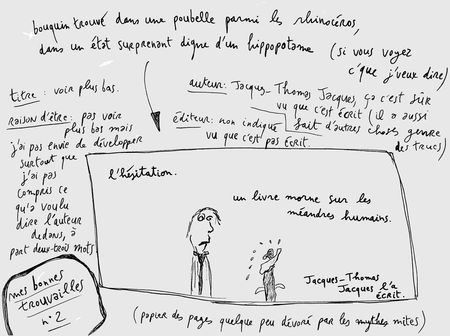 bouquin trouvé dans une poubelle parmi les rhinocéros,
dans un état surprenant digne d'un hippopotame
(si vous voyez
c'que j'veux dire)
titre: voir plus bas.
raison d'être: pas voir
plus bas mais
j'ai pas envie de développer
surtout que
j'ai pas
compris ce
qu'a voulu
dire l'auteur
dedans, à
part deux-trois mots
auteur: Jacques-Thomas Jacques, ça c'est sûr
vu que c'est écrit (il a aussi
fait d'autres choses genre
des trucs)
éditeur: non indiqué
vu que c'est pas écrit.
l'hésitation.
un livre morne sur les
méandres humains.
Jacques-Thomas
Jacques l'a
écrit.
mes bonnes
trouvailles
n°2
(papier des pages quelque peu dévoré par les mites)